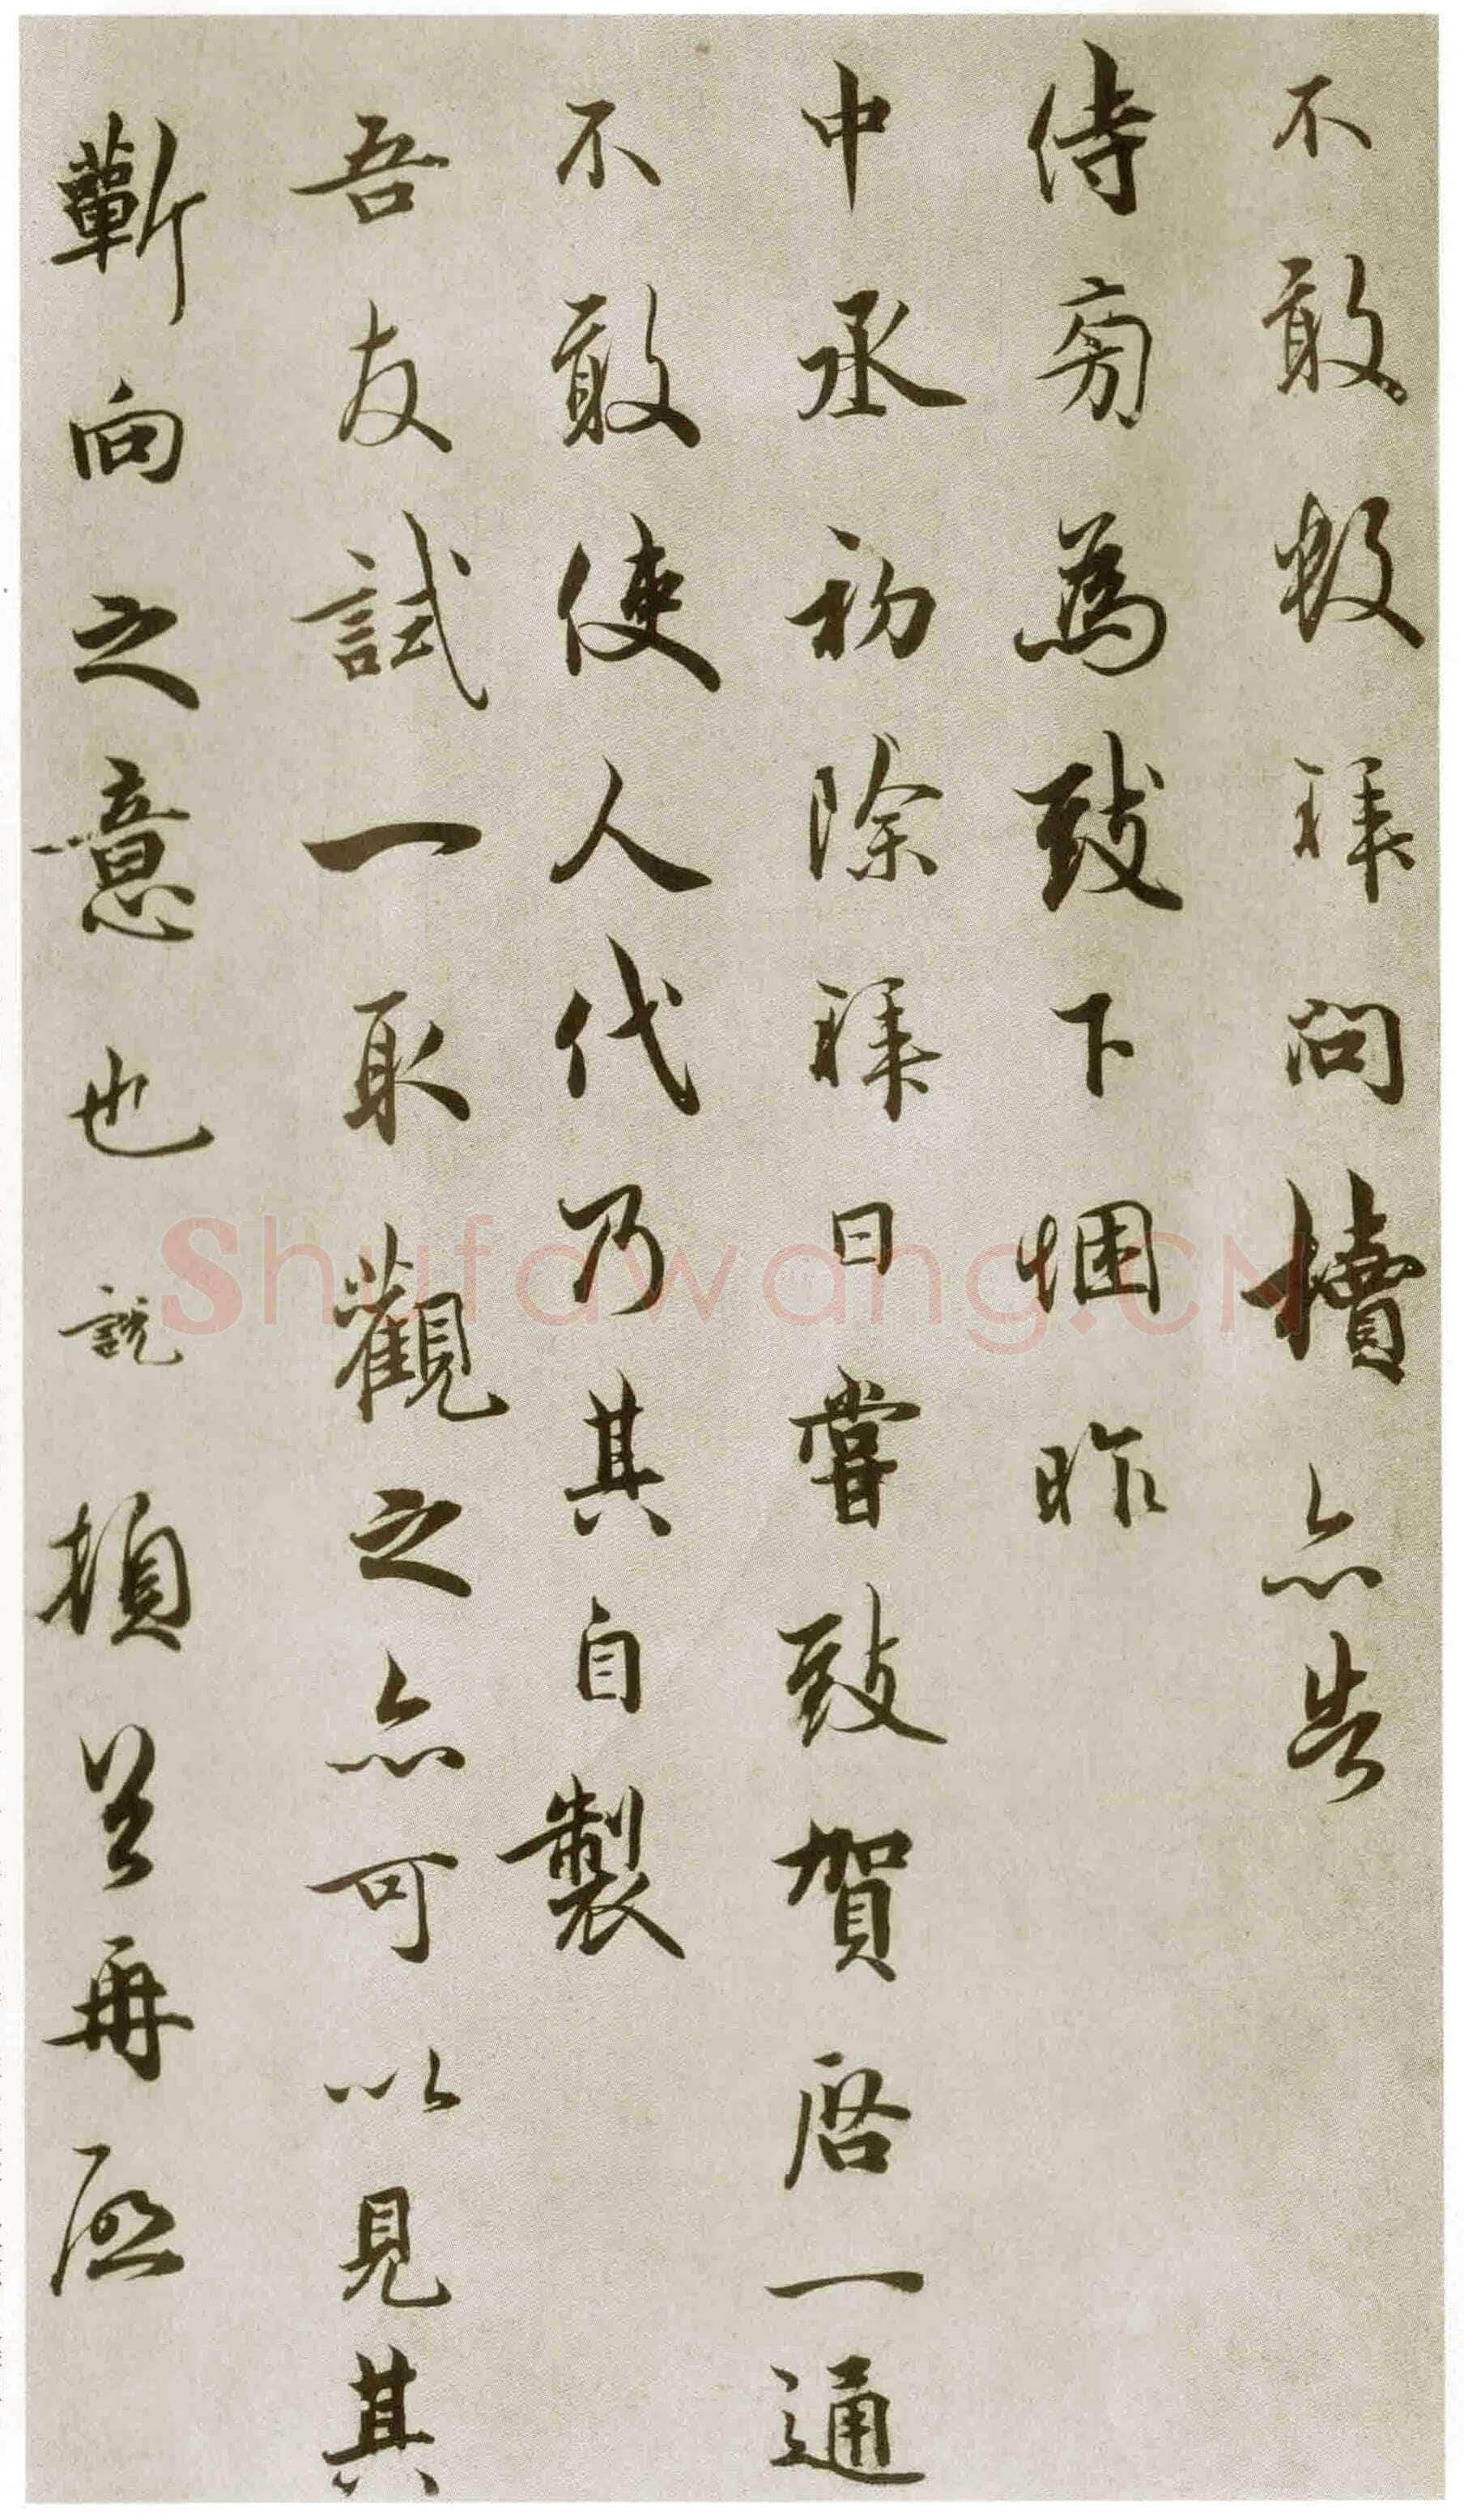 不敢數拜問牘亦告
侍旁為致下悃昨
中丞初除拜日嘗致賀啓一通
不敢使人代乃其自製
吾友試一取觀之亦可以見其
蘄向之意也說頓首再啟
Shufawang.CN